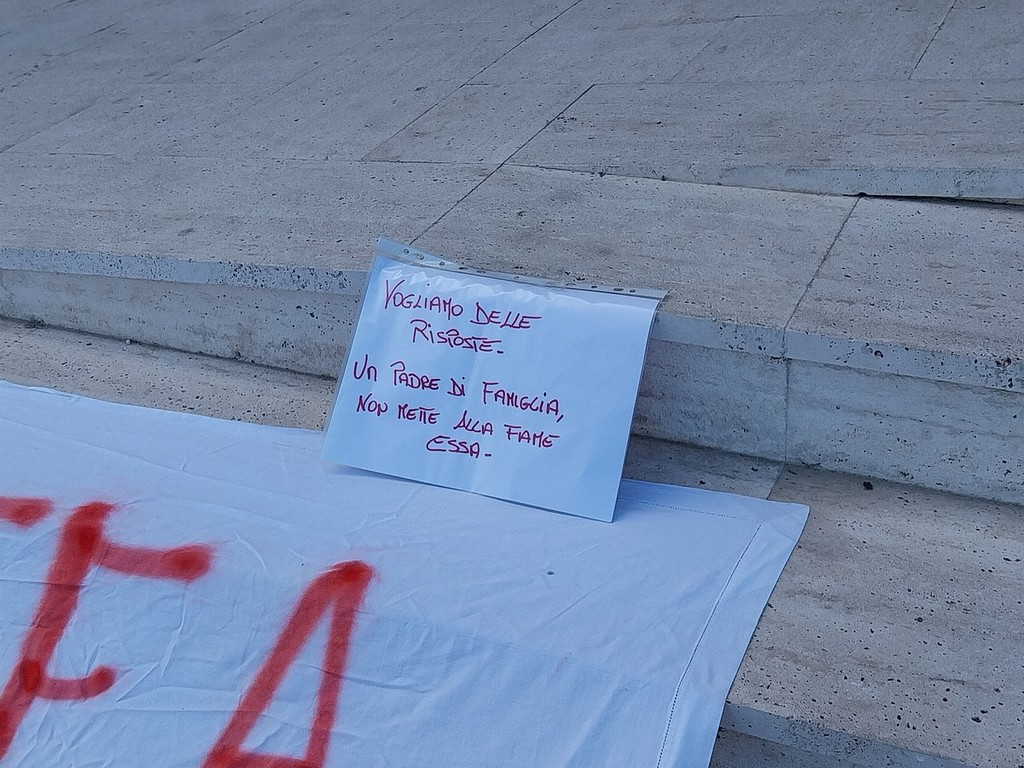 VOGLIAMO DELLE
RISPOSTE-
UN PADRE DI FAMIGLIA,
NON METTE ALLA FAME
ESSA-
FA